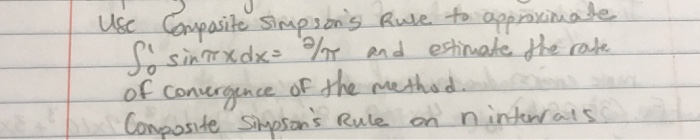 Use Composite Simpson's Rule to approximate
∫₀¹ sin πx dx = 2/π and estimate the rate
of convergence of the method.
Composite Simpson's Rule on n intervals